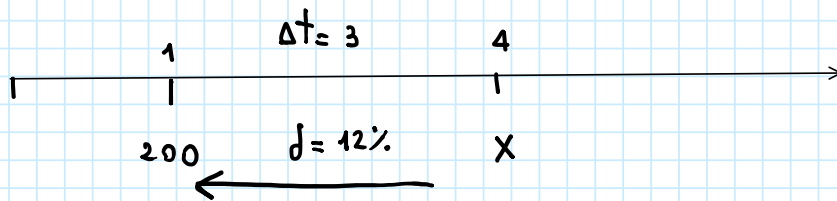 1 Δt= 3 4
200 d= 12% X